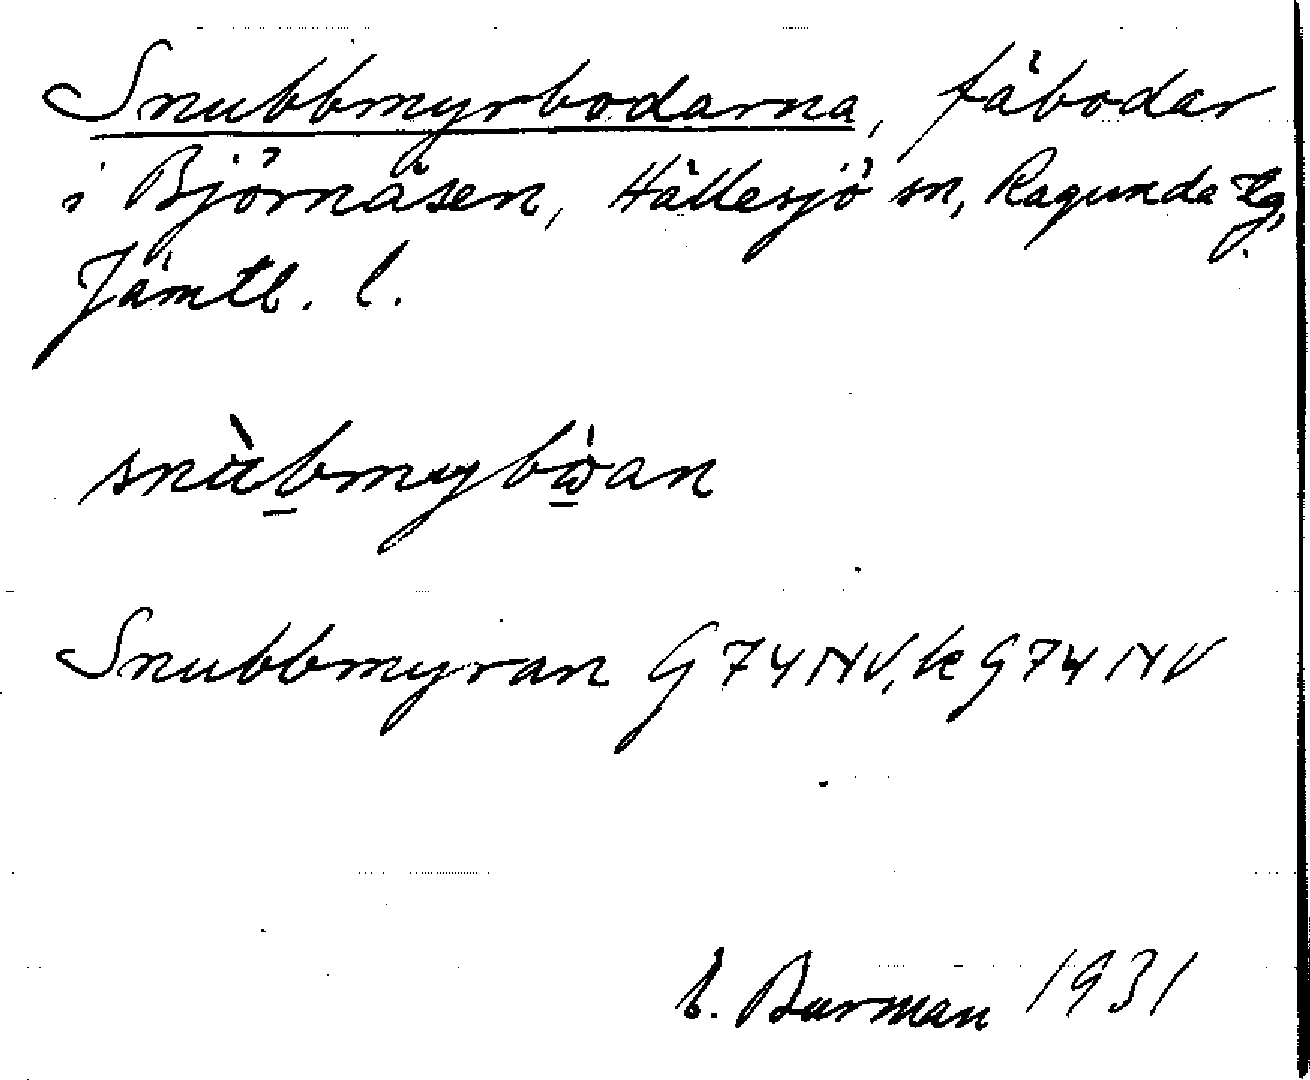 Snubbmyrbodarna, fäbodar
i Björnåsen, Hällesjö sn, Ragunda tg,
Jämtl. l.
Snubbmyran G74NV, k G74NV
Burman 1931